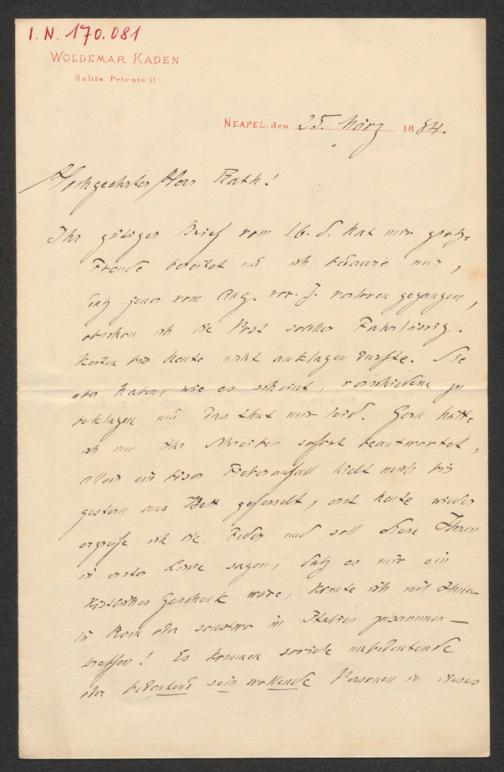 I. N. 170.081
WOLDEMAR KADEN
Salita Petraio II
NEAPEL, den 25. März 1884.
Hochgeehrter Herr Rath!
Ihr gütiger Brief vom 16. d. hat mir große
Freude bereitet und ich bedaure nur,
daß jener vom Aug. vor. J. verloren gegangen,
obschon ich die Post solcher Fahrlässig-
keiten bis heute nicht anklagen durfte. Sie
aber haben, wie es scheint, verschiedene zu
beklagen und das thut mir leid. Gern hätte
ich nun Ihr Schreiben sofort beantwortet,
allein ein böser Fieberanfall hielt mich bis
gestern ans Bett gefesselt, erst heute wieder
ergreife ich die Feder und soll diese Ihnen
in erster Linie sagen, daß es mir ein
köstliches Geschenk wäre, könnte ich mit Ihnen
in Rom oder sonstwo in Italien zusammen-
treffen! Es kommen soviele unbedeutende
oder bedeutend sein wollende Personen in dieses